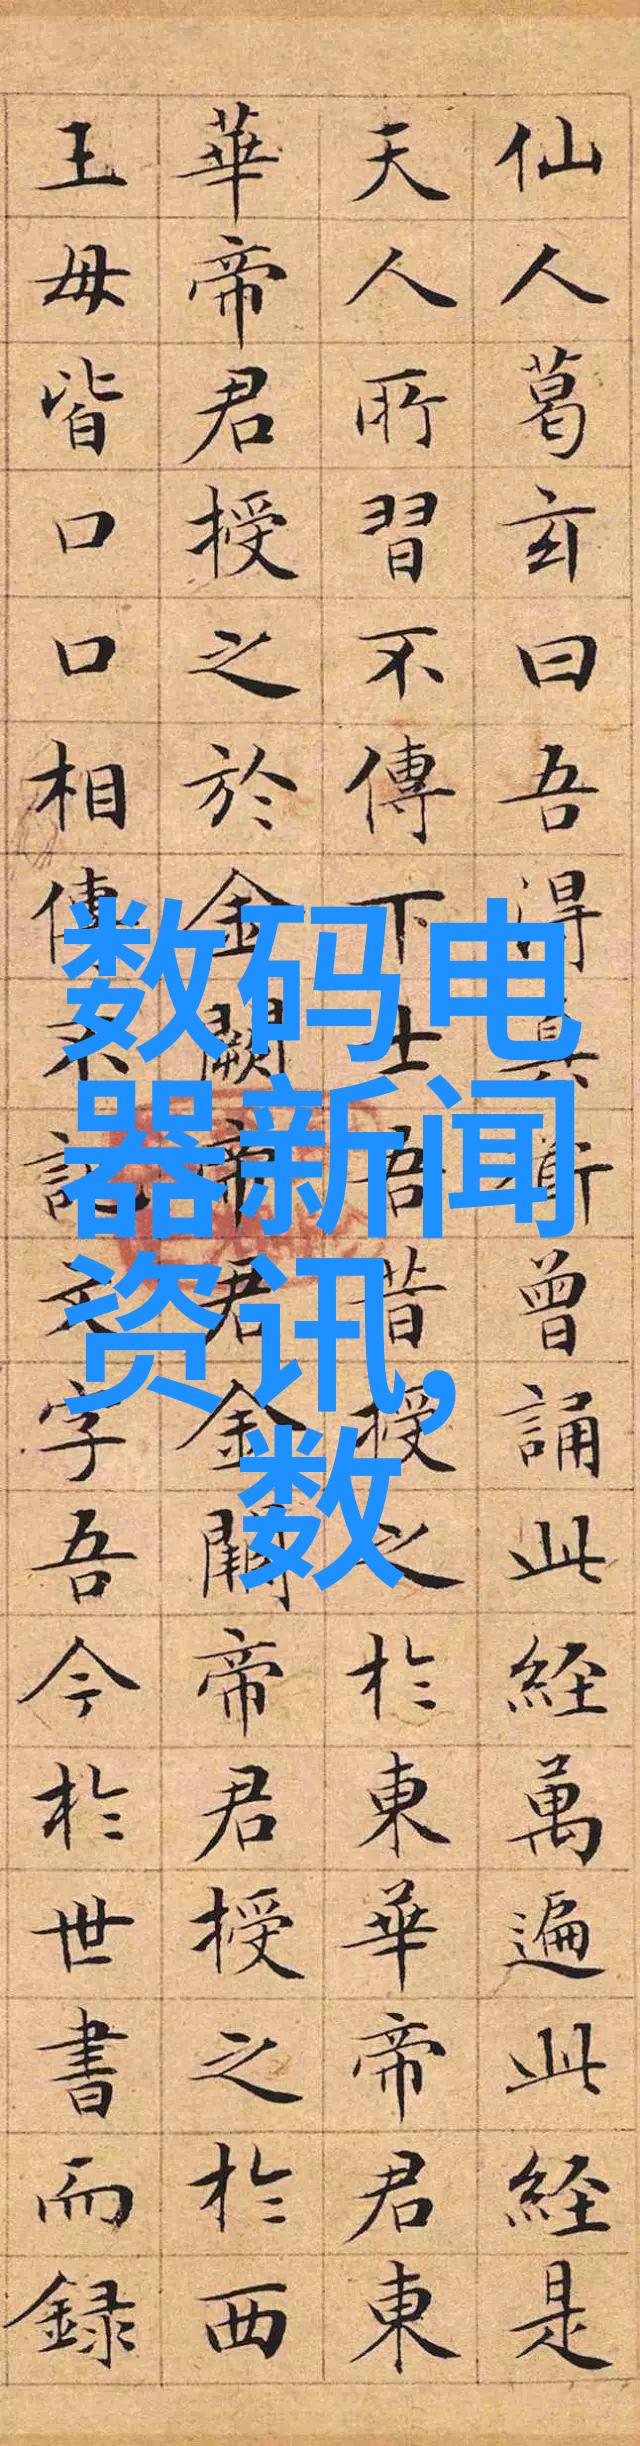 仙人葛玄曰吾得真道曾誦此経萬遍此経是
天人所習不傳下士吾昔授之於東華帝君東
華帝君授之於金闕帝君金闕帝君授之於西
王母皆口口相傳不記文字吾今於世書而録
数码电
器新闻
资讯,
数